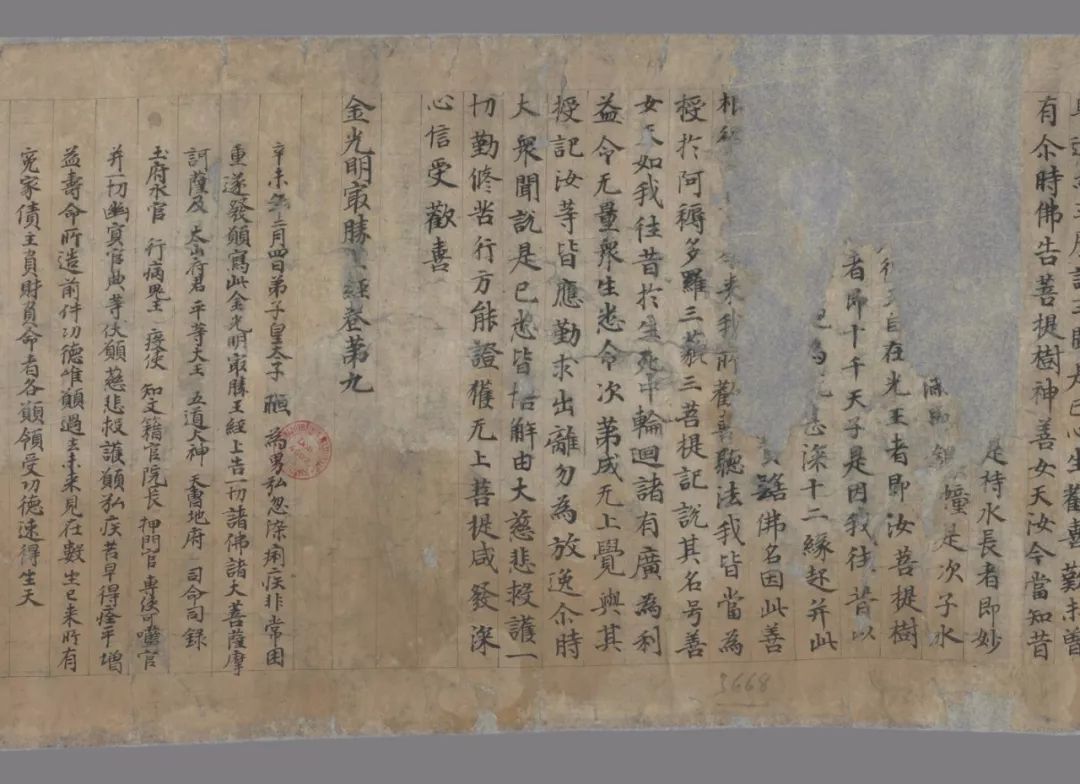 心生歡喜歎未曾
有尒時佛告菩提樹神善女天汝今當知昔
是持水長者即妙
幢是次子水
天自在光王者即汝菩提樹
者即十千天子是因我往昔以
甚深十二緣起并此
寶髻佛名因此善
根 來我所歡喜聽法我皆當為
授於阿耨多羅三藐三菩提記說其名号善
女天如我往昔於生死中輪迴諸有廣為利
益令无量衆生悉令次第成无上覺與其
授記汝等皆應勤求出離勿為放逸尒時
大衆聞說是已悉皆悟解由大慈悲救護一
切勤修苦行方能證獲无上菩提咸發深
心信受歡喜
金光明㝡勝王經卷第九
辛未年二月四日弟子皇太子暅為男弘忽染痢疾非常困
重遂發願寫此金光明㝡勝王經上告一切諸佛諸大菩薩摩
訶薩及太山府君平等大王五道大神天曹地府司命司錄
土府水官行病鬼王疫使知文籍官院長押門官專使可嚂官
并一切幽冥官典等伏願慈悲救護願弘疾苦早得痊平增
益壽命所造前件功德惟願過去未來見在數生已來所有
寃家債主負財負命者各願領受功德速得生天